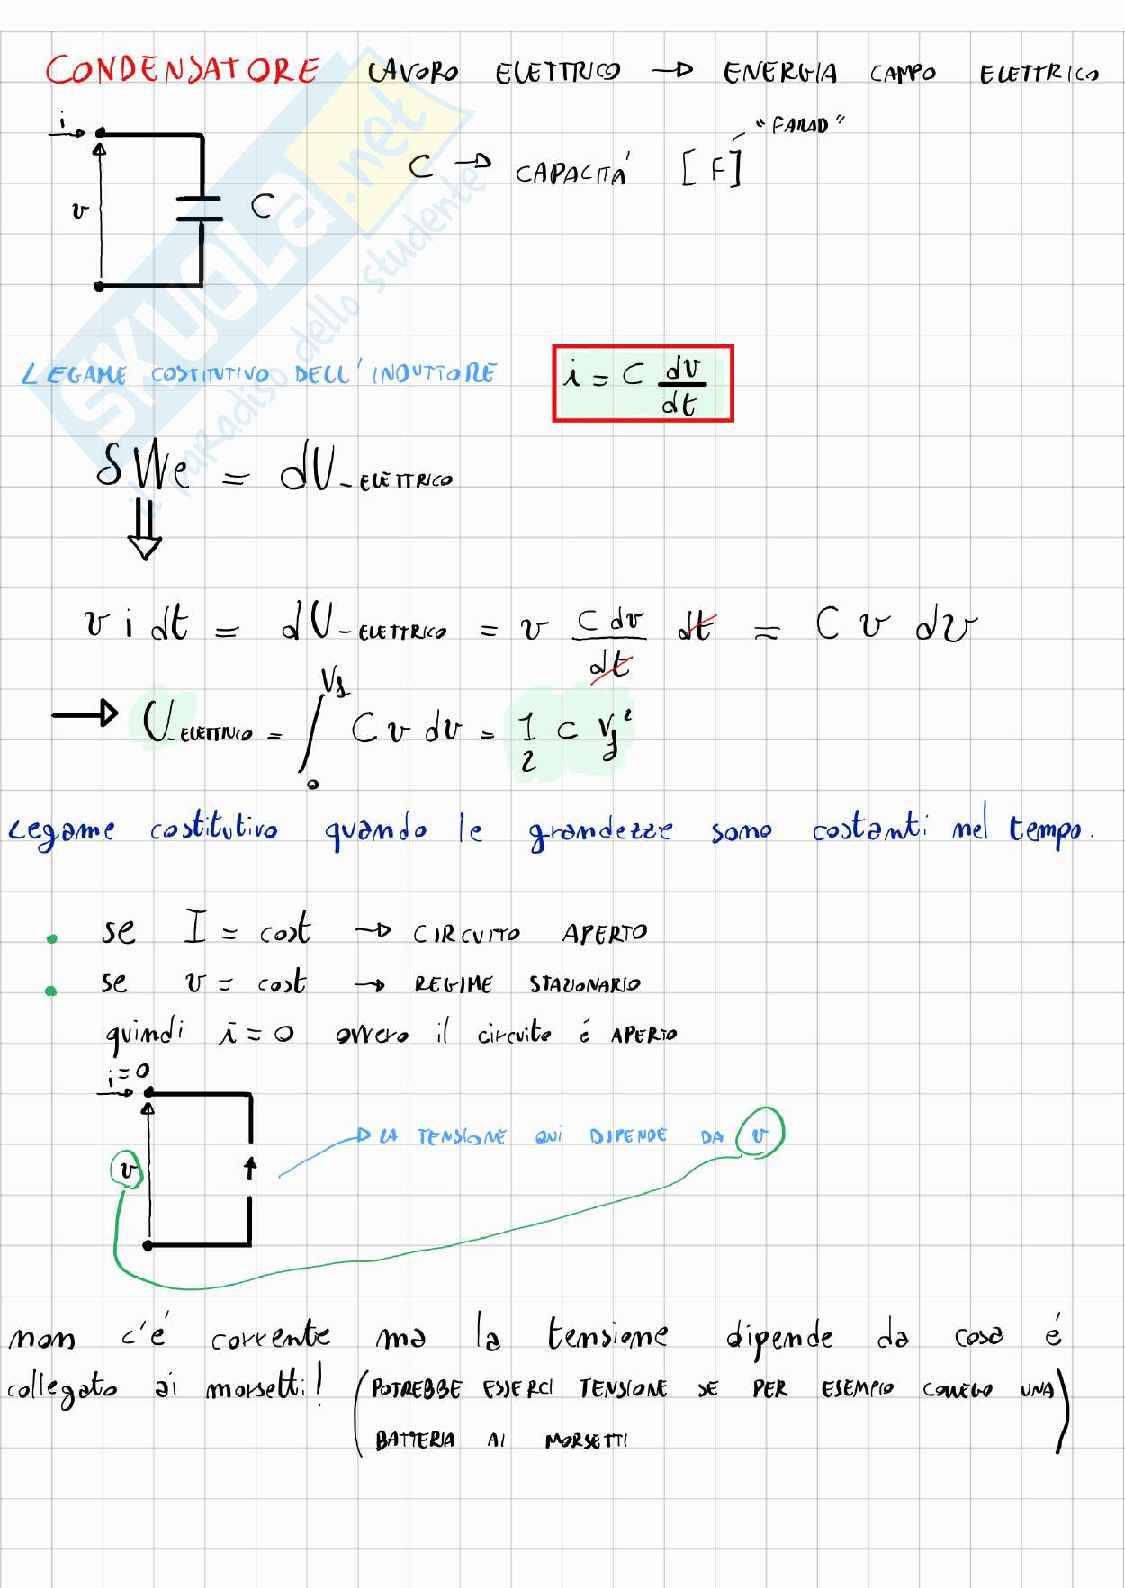 CONDENSATORE LAVORO ELETTRICO → ENERGIA CAMPO ELETTRICO
i
"FARAD"
C → CAPACITÁ [F]
v
C
SKUOLA.net
il paradiso dello studente
LEGAME COSTITUTIVO DELL'INDUTTORE i = C dv/dt
δWe = dU_ELETTRICO
⇓
v i dt = dU_ELETTRICO = v C dv/dt dt = C v dv
→ U_ELETTRICO = ∫₀^Vf C v dv = 1/2 C Vf²
Legame costitutivo quando le grandezze sono costanti nel tempo.
• se I = cost → CIRCUITO APERTO
• se v = cost → REGIME STAZIONARIO
quindi i = 0 ovvero il circuito é APERTO
i=0
LA TENSIONE QUI DIPENDE DA v
v
non c'é corrente ma la tensione dipende da cosa é
collegato ai morsetti! (POTREBBE ESSERCI TENSIONE SE PER ESEMPIO COLLEGO UNA
BATTERIA AI MORSETTI)